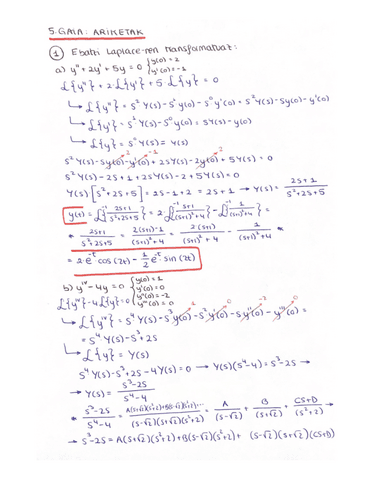 5. GAIA: ARIKETAK
1 Ebatzi Laplace-ren transformatuaz:
a) y'' + 2y' + 5y = 0 { y(0) = 2
y'(0) = -1
ℒ{y''} + 2·ℒ{y'} + 5·ℒ{y} = 0
↳ ℒ{y''} = s² Y(s) - s¹ y(0) - s⁰ y'(0) = s² Y(s) - s y(0) - y'(0)
↳ ℒ{y'} = s¹ Y(s) - s⁰ y(0) = s Y(s) - y(0)
↳ ℒ{y} = s⁰ Y(s) = Y(s)
s² Y(s) - s y(0) - y'(0) + 2s Y(s) - 2 y(0) + 5 Y(s) = 0
s² Y(s) - 2s + 1 + 2s Y(s) - 2 + 5 Y(s) = 0
Y(s) [s² + 2s + 5] = 2s - 1 + 2 = 2s + 1 → Y(s) = (2s + 1)/(s² + 2s + 5)
y(t) = ℒ⁻¹{(2s+1)/(s²+2s+5)} = 2·ℒ⁻¹{(s+1)/((s+1)²+4)} - ℒ⁻¹{1/((s+1)²+4)} =
* (2s+1)/(s²+2s+5) = (2(s+1)-1)/((s+1)²+4) = 2·(s+1)/((s+1)²+4) - 1/((s+1)²+4) *
= 2·e⁻ᵗ·cos(2t) - 1/2 e⁻ᵗ·sin(2t)
b) yᴵⱽ - 4y = 0 { y(0) = 1
y'(0) = 0
y''(0) = -2
y'''(0) = 0
ℒ{yᴵⱽ} - 4ℒ{y} = 0
↳ ℒ{yᴵⱽ} = s⁴ Y(s) - s³ y(0) - s² y'(0) - s y''(0) - y'''(0) =
= s⁴ Y(s) - s³ + 2s
↳ ℒ{y} = Y(s)
s⁴ Y(s) - s³ + 2s - 4 Y(s) = 0 → Y(s)(s⁴ - 4) = s³ - 2s →
→ Y(s) = (s³ - 2s)/(s⁴ - 4)